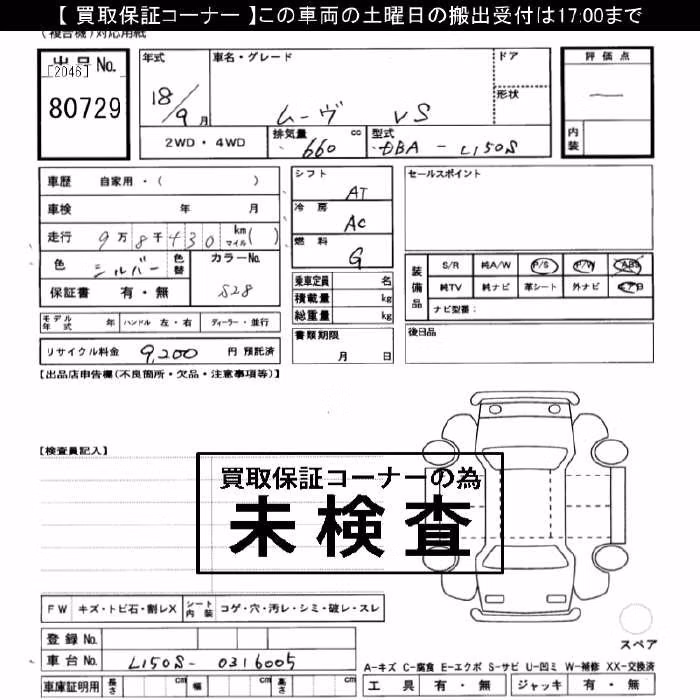 【 買取保証コーナー 】この車両の土曜日の搬出受付は17:00まで
(複合機)対応用紙
出品No.
[2046]
80729
年式
18/9月
車名・グレード
ムーヴ VS
ドア
形状
評価点
—
内装
2WD・4WD
排気量 660 cc
型式 DBA-L150S
車歴 自家用・( )
車検 年 月
走行 9万8千430 km マイル( )
色 シルバー 色替
カラーNo. S28
保証書 有・無
シフト AT
冷房 AC
燃料 G
乗車定員 名
積載量 kg
総重量 kg
セールスポイント
装備品
S/R 純A/W P/S P/W ABS
純TV 純ナビ 革シート 外ナビ エアB
ナビ型番:
モデル年式 年 ハンドル 左・右 ディーラー・並行
リサイクル料金 9,200 円 預託済
書類期限
月 日
後日品
【出品店申告欄(不良箇所・欠品・注意事項等)】
【検査員記入】
買取保証コーナーの為
未検査
FW キズ・トビ石・割レX シート内装 コゲ・穴・汚レ・シミ・破レ・スレ
登録No.
車台No. L150S-0316005
車庫証明用 長さ cm 幅 cm 高さ cm
スペア
A-キズ C-腐食 E-エクボ S-サビ U-凹ミ W-補修 XX-交換済
工具 有・無 ジャッキ 有・無